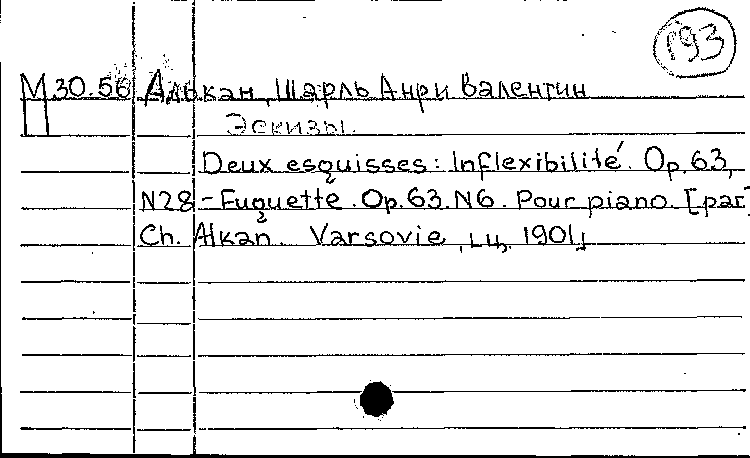 193
М 30.56 Алькан, Шарль Анри Валентин
П Эскизы.
Deux esquisses: Inflexibilité. Op. 63,
N28 - Fuguette. Op. 63. N6. Pour piano. [par]
Ch. Alkan. Varsovie, ц. 1901,